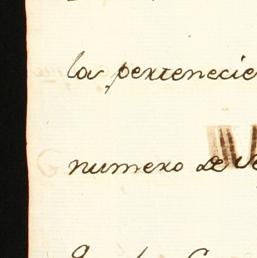 la pertenecie
numero de ve